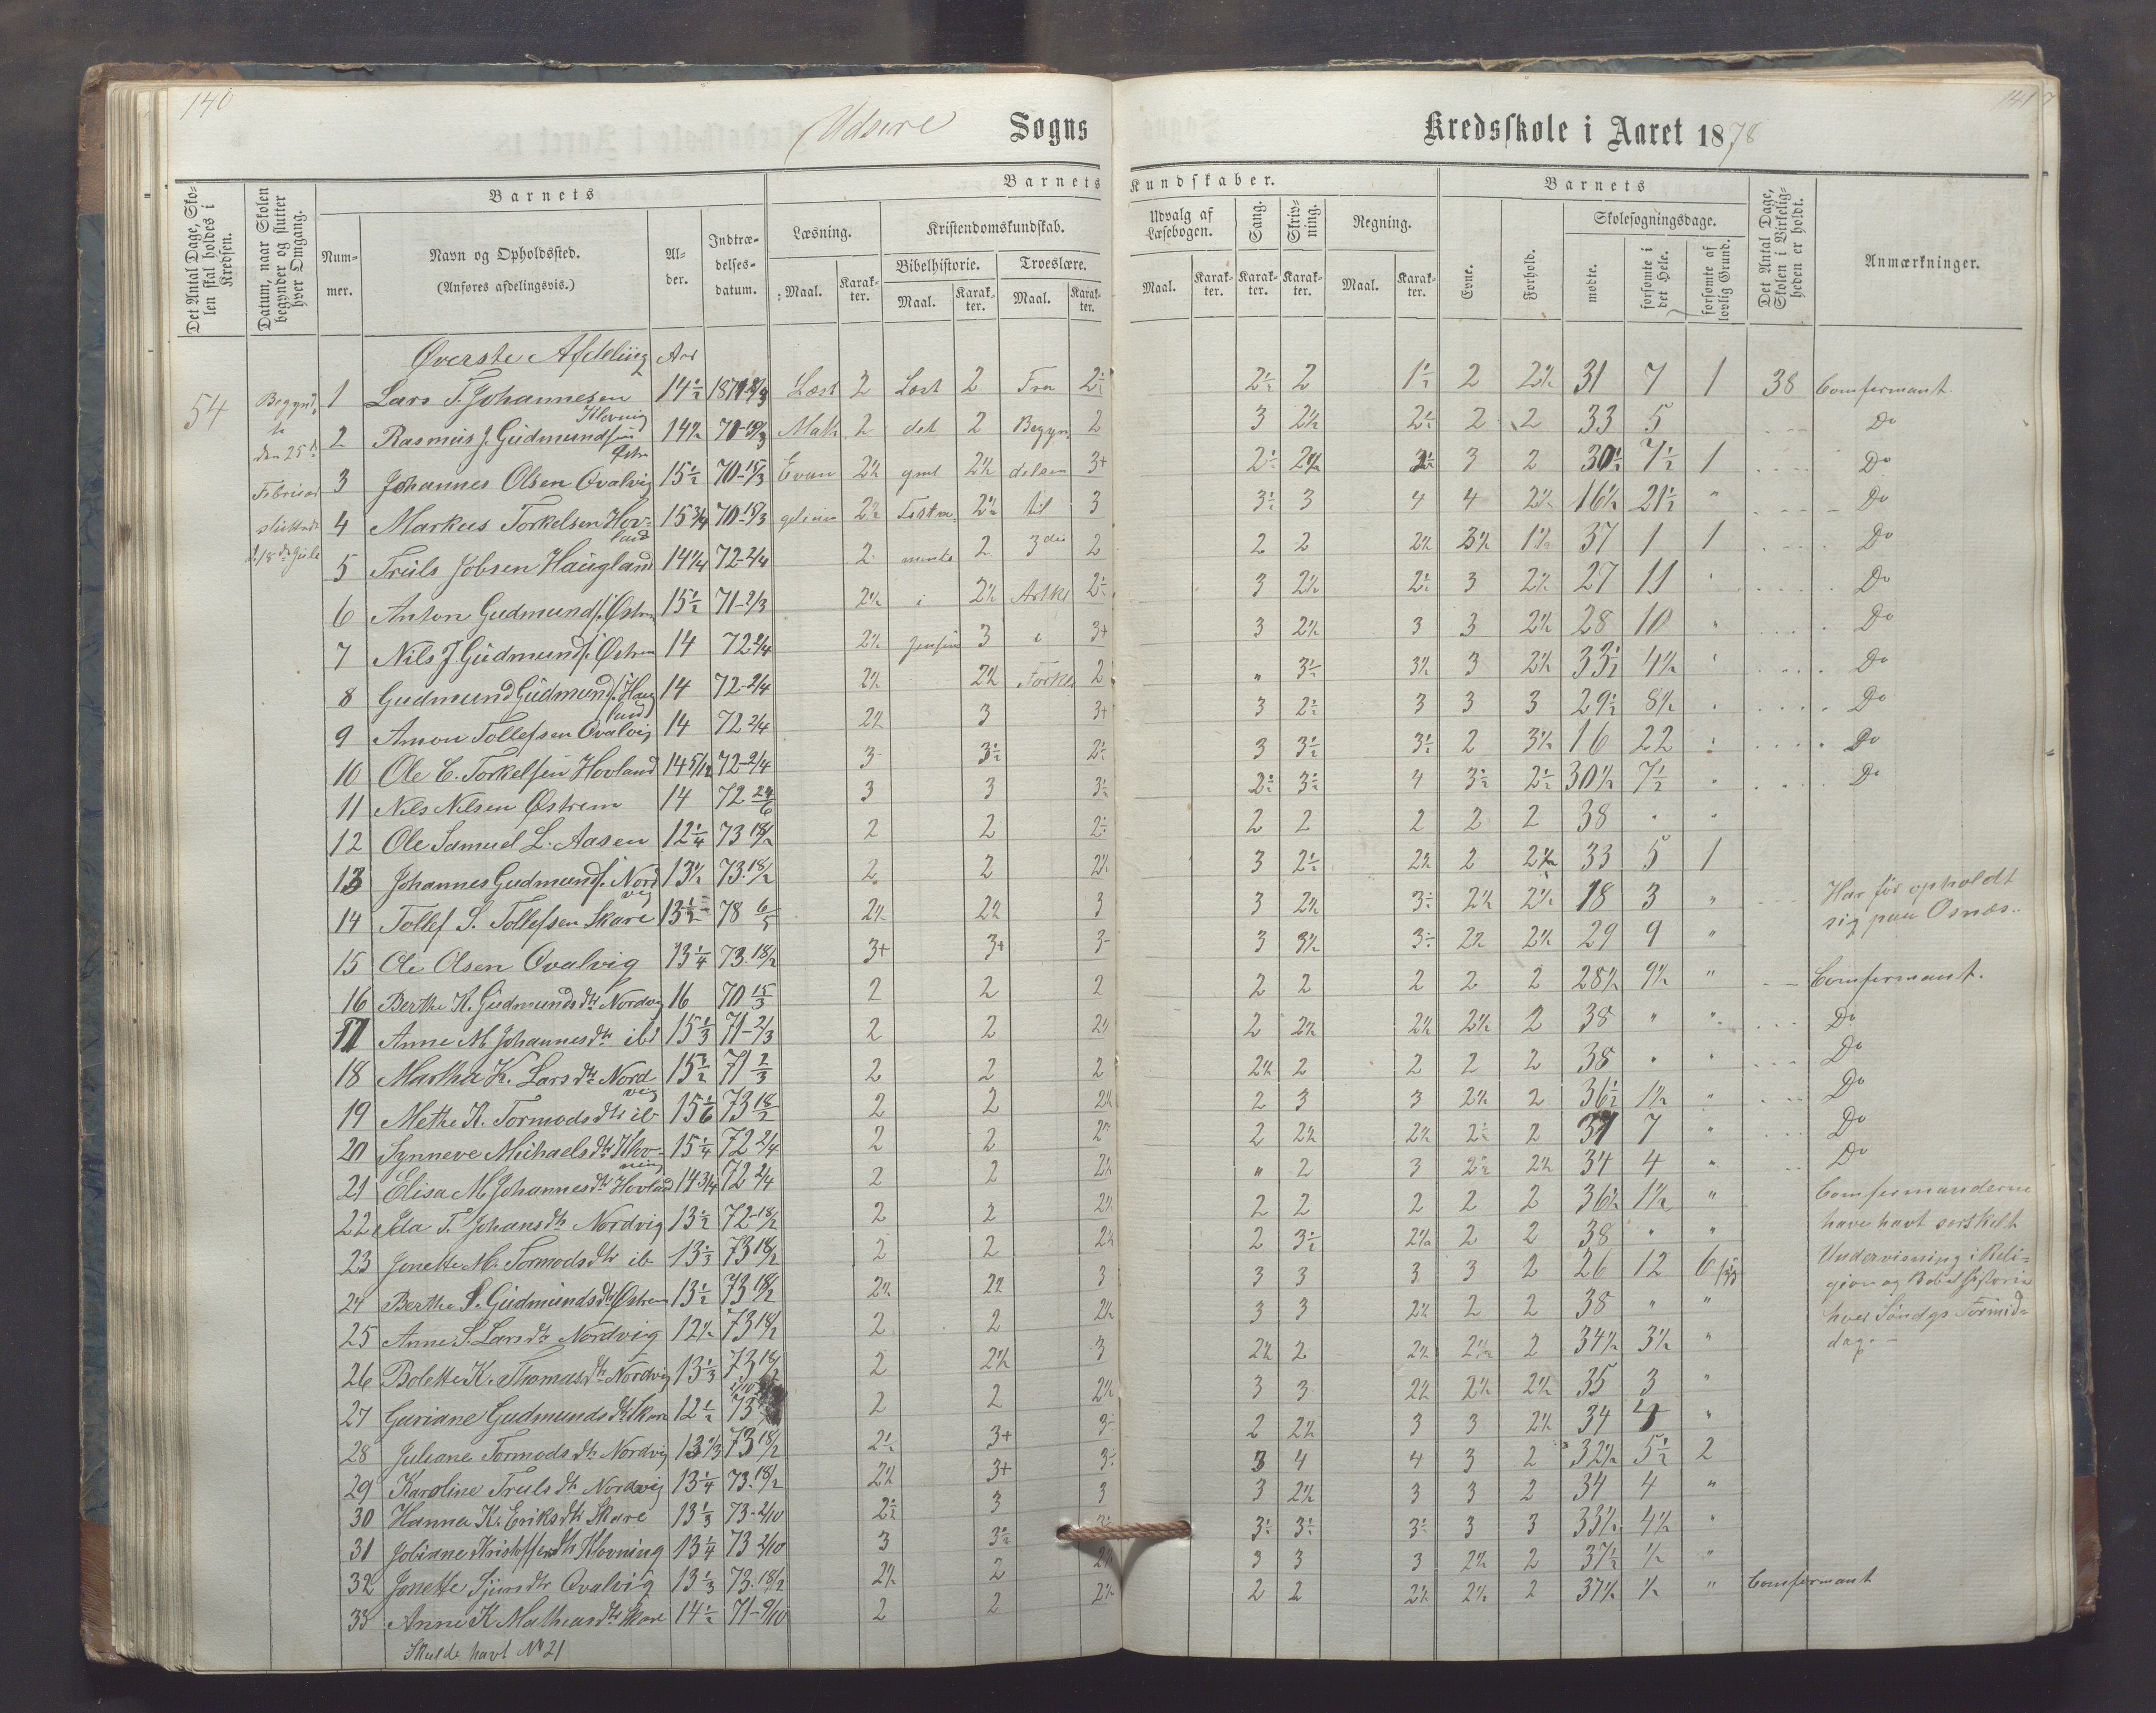 140
141
Udsire Sogns Kredsskole i Aaret 1878
Det Antal Dage, Skolen skal holdes i Kredsen.
Datum, naar Skolen begynder og slutter hver Omgang.
Barnets
Nummer.
Navn og Opholdssted.
(Anføres afdelingsvis.)
Alder.
Indtrædelsesdatum.
Barnets Kundskaber.
Læsning.
Kristendomskundskab.
Bibelhistorie.
Troeslære.
Maal.
Karakter.
Maal.
Karakter.
Maal.
Karakter.
Udvalg af Læsebogen.
Sang.
Skrivning.
Regning.
Maal.
Karakter.
Karakter.
Karakter.
Maal.
Karakter.
Barnets
Evne.
Forhold.
Skolesøgningsdage.
mødte.
forsømte i det Hele.
forsømte af lovlig Grund.
Det Antal Dage, Skolen i Virkeligheden er holdt.
Anmærkninger.
Øverste Afdeling Aar
54
Begyndte
den 25de
Februar
sluttede
1 Lars T. Johannesen 14½ Læst 2 Læst 2 Fra 2½ 2½ 2 1½ 2 2½ 31 7 1 38 Comfermant
Klovning
2 Rasmus J. Gudmundsen 14½ 70-15/3 Math 2 det 2 Begyn 2 3 2½ 2½ 2 2 33 5 Do
3 Johannes Olsen Qvalvig 15½ 70-15/3 Evan 2½ gml 2½ delsen 3+ 2½ 2½ 3 2 30½ 7½ 1 Do
4 Markus Torkelsen Hovland 15¾ 70-15/3 gelium 2½ Testa 2½ til 3 3½ 3 4 4 2½ 16½ 21½ " Do
5 Truls Jobsen Haugland 14¼ 72-2/4 2 mente 2 3die 2 2 2 2½ 1½ 37 1 1 Do
6 Anton Gudmunds. Østrem 15½ 71-2/3 2½ i 2½ Artkl 2½ 3 2½ 2½ 3 2½ 27 11 Do
7 Nils J Gudmunds. Østrem 14 72-2/4 2½ 3 i 3+ 3 2½ 3 3 2½ 28 10 Do
8 Gudmund Gudmunds. Haugland 14 72-2/4 2½ 2½ Forkl 2 " 3½ 3½ 3 2½ 33½ 4½ Do
9 Amon Tollefsen Qvalvig 14 72 2/4 2½ 3 3+ 3 2½ 3 3 3 29½ 8½ Do
10 Ole C. Torkelsen Hovland 14 5/12 72-2/4 3 3½ 2½ 3 3½ 3½ 2 3½ 16 22 Do
11 Nils Nilsen Østrem 14 72 24/6 3 3 3½ 2½ 3½ 4 3½ 2½ 30½ 7½ Do
12 Ole Samuel L. Aasen 12¼ 73 18/2 2 2 2½ 2 2 2 2 2 38 " "
13 Johannes Gudmunds. Nordvig 13½ 73.18/2 2 2 2½ 3 2½ 2½ 2 2½ 33 5 1
14 Tollef S. Tollefsen Skare 13½ 78 6/5 2½ 2½ 3 3 2½ 3½ 2½ 2½ 18 3 " Har før opholdt
sig paa Osnæs.
15 Ole Olsen Qvalvig 13¼ 73.18/2 3+ 3+ 3 3 3½ 3½ 2½ 2½ 29 9 "
16 Berthe K. Gudmundsdtr Nordvig 16 70 15/3 2 2 2 2 2 2 2 2 28½ 9½ " Comfermant.
17 Anne M Johannesdtr ibd 15⅓ 71-2/3 2 2 2½ 2 2½ 2½ 2½ 2 38 " " Do
18 Martha K. Larsdtr Nordvig 15½ 71 2/3 2 2 2 2½ 2 2 2 2 38 " " Do
19 Methe K. Tormodsdtr ib 15⅙ 73 18/2 2 2 2½ 2 3 3 2½ 2 36½ 1½ " Do
20 Synneve Michaelsdtr Klovning 15¼ 72 2/4 2 2 2½ 2 2½ 2½ 2½ 2 31 7 " Do
21 Elisa M Johannesdtr Hovland 14¾ 72 2/4 2 2 2½ " 2 3 2½ 2½ 34 4 " Do
22 Ida T. Johansdtr Nordvig 13½ 72-18/2 2 2 2½ 2 2 2 2 2 36½ 1½ " Comfermanderne
23 Jonette M. Tormodsdtr ib 13⅓ 73 18/2 2 2 2½ 2 3½ 2½ 2 2 38 " " have havt serskelt
24 Berthe S. Gudmundsdtr Østrem 13½ 73 18/2 2½ 2½ 3 3 3 3 3 2 26 12 6 syg Undervisning i Religion og Bibelhistorie
25 Anne S. Larsdtr Nordvig 12½ 73 18/2 2 2 2½ 3 3 2½ 2 2 38 " " hver Søndgs Formiddag.
26 Bolette K. Thomasdtr Nordvig 13⅓ 73 18/2 2 2½ 3 2½ 2 2½ 2½ 2 34½ 3½ "
27 Guriane Gudmundsdtr Skare 12½ 73 2 2 2½ 3 3 2½ 2½ 2½ 35 3 "
28 Juliane Tormodsdtr Nordvig 13⅓ 73 18/2 2½ 3+ 3½ 2 2½ 3 3 2½ 34 4 "
29 Karoline Trulsdtr Nordvig 13¼ 73.18/2 2½ 3+ 3½ 3 4 4 3 2 32½ 5½ 2
30 Hanna K. Eriksdtr Skare 13⅓ 73-2/10 2½ 3 3 3 2½ 3 3 2 34 4 "
31 Jobiane Kristoffersdtr Klovning 13¼ 73 2/10 3 3½ 3½ 3½ 3½ 3 3 33½ 4½ "
32 Jonette Sjursdtr Qvalvig 13⅓ 73.18/2 2½ 2 2½ 3 3 3 2½ 2 37½ ½ "
33 Anne K Mathiasdtr Skare 14½ 71-9/10 2 2 2½ 2 2 2½ 2½ 2 37½ ½ " Comfermant
Skulde havt No 21